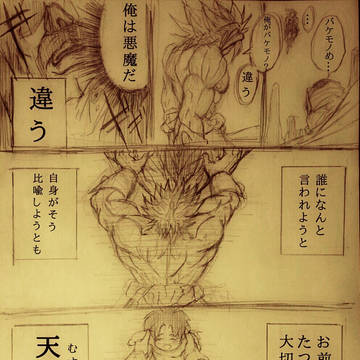 …
バケモノめ…
俺がバケモノ?
違う
俺は悪魔だ
違う
誰になんと
言われようと
自身がそう
比喩しようとも
お前
たつ
大切
むよ
天